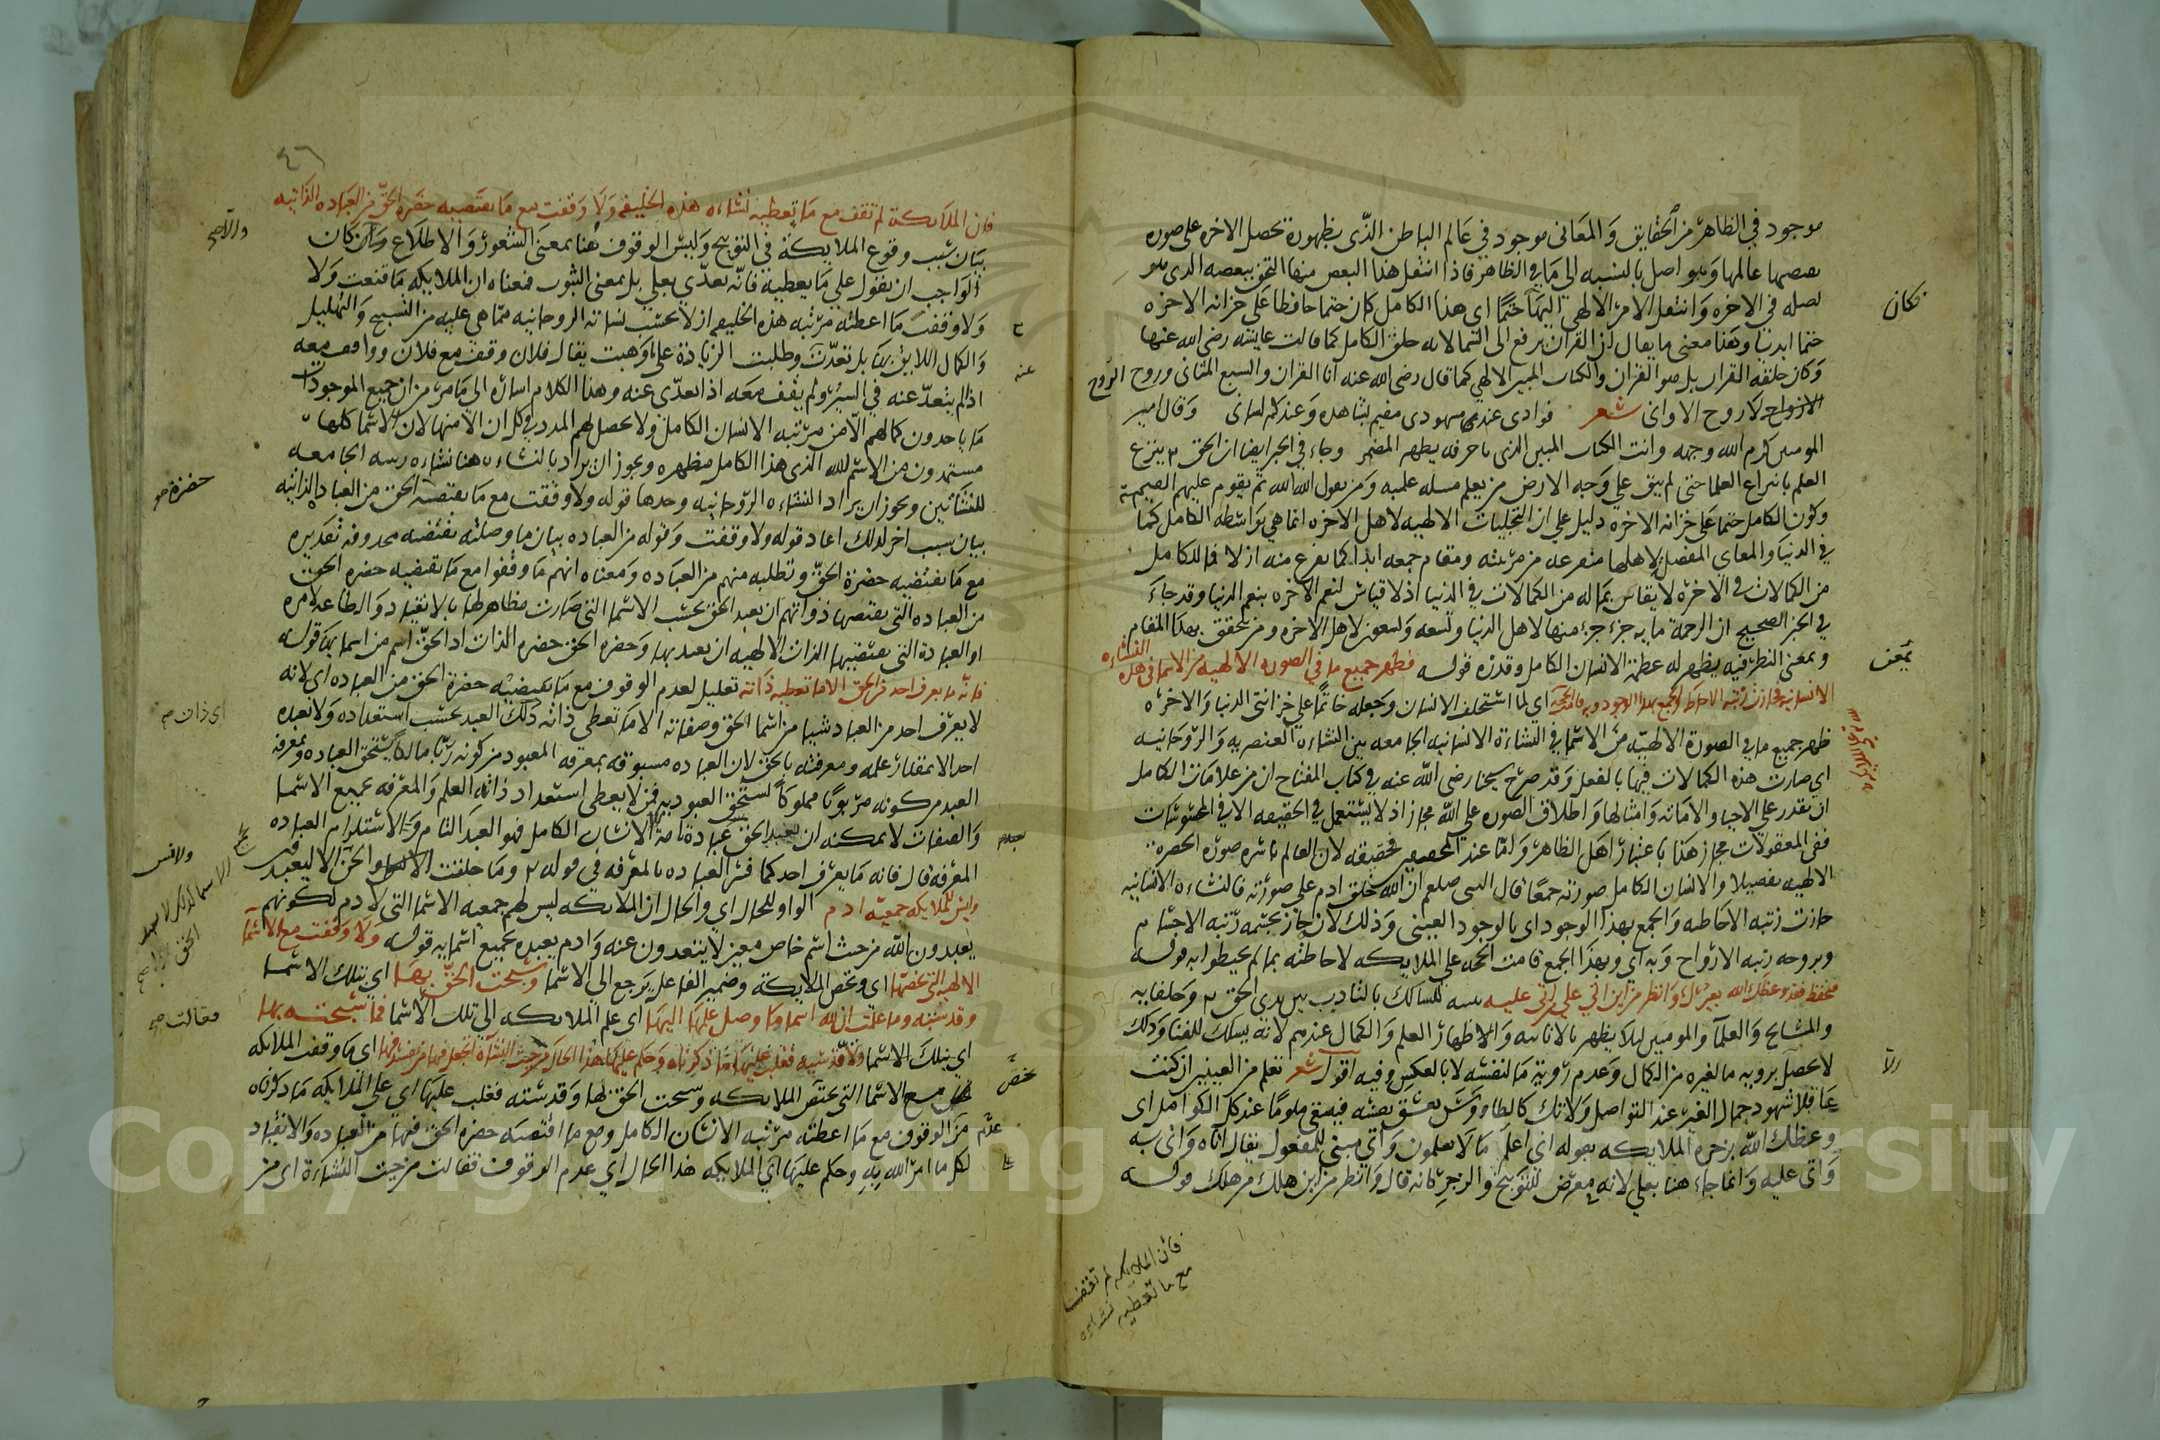 موجود في الظاهر من الحقايق والمعاني موجود في عالم الباطن الذي بظهوره تحصل الاخره على صوره
اصل بالنسبه الى ما في الظاهر فاذا انتقل هذا البعض منها التحق ببعضه الذي هو
اصله في الاخره وانتقل الامر الالهي اليها ختما اي هذا الكامل كان ختما حافظا على خزانه الاخره
نكان
ختما ابديا وهذا معنى ما يقال ان القران يرفع الى السما لانه خلق الكامل كما قالت عايشه رضي الله عنها
وكان خلقه القران بل هو القران والكتاب المبين الالهي كما قال رضي الله عنه انا القران والسبع المثاني وروح الروح
لا روح الاواني شعر فوادي عند مشهودي مقيم يشاهده وعندكم لساني وقال امير
المومنين كرم الله وجهه وانت الكتاب المبين الذي باحرفه يظهر المضمر وجاء في الخبر ايضا ان الحق ينزع
العلم بانتزاع العلما حتى لم يبق على وجه الارض من يعلم مسله علميه ومن يقول الله الله ثم يقوم عليهم القيمة
وكون الكامل ختما على خزانه الاخره دليل على ان التجليات الالهيه لاهل الاخره انما هي بواسطه الكامل كما
في الدنيا والمعاني المفصله لاهلها متفرعه من مرتبته ومقام جمعه ابدا كما تفرع منه ازلا فما للكامل
من الكمالات في الاخرة لا يقاس بما له من الكمالات في الدنيا اذ لا قياس لنعم الاخره بنعم الدنيا وقد جاء
في الخبر الصحيح ان الرحمة مايه جزء جزء منها لاهل الدنيا وتسعه وتسعون لاهل الاخره ومن تحقق بهذا المقام
ويمعن النظر فيه يظهر له عظمة الانسان الكامل وقدره قوله فظهر جميع ما في الصورة الالهية من الاسما في هذه النشاءه
يمعن
الانسانيه فحازت رتبة الاحاطه والجمع بهذا الوجود وبه قامت الحجه اي لما استخلف الانسان وجعله خاتما على خزانتي الدنيا والاخره
ظهر جميع ما في الصورة الالهيه من الاسما في النشاءة الانسانيه الجامعه بين النشاءة العنصريه والروحانيه
اي صارت هذه الكمالات فيها بالفعل وقد صرح شيخنا رضي الله عنه في كتاب المفتاح ان من علامات الكامل
ان يقدر على الاحيا والاماته وامثالها واطلاق الصوره على الله مجاز اذ لا يستعمل في الحقيقه الا في المحسوسات
ففي المعقولات مجاز هذا باعتبار اهل الظاهر واما عند المحقق فحقيقه لان العالم باسره صوره الحضره
الالهيه تفصيلا والانسان الكامل صورته جمعا قال النبي صلعم ان الله خلق ادم على صورته فالنشاءه الانسانيه
حازت رتبه الاحاطه والجمع بهذا الوجود اي بالوجود العيني وذلك لانه حاز بجسمه رتبه الاجسام
وبروحه رتبه الارواح وبه اي وبهذا الجمع قامت الحجه على الملايكه لاحاطته بما لم يحيطوا به قوله
فتحفظ فقد وعظك الله بغيرك وانظر من اين اتي على من اتي عليه تنبيه للسالك بالتادب بين يدي الحق وخلفايه
والمشايخ والعلما والمومنين ليلا يظهر بالانانيه والاظهار العلم والكمال عندهم لانه يسلك للفنا وذلك
لا يحصل برويه ما لغيره من الكمال وعدم رؤية ما لنفسه لا بالعكس وفيه اقول شعر تعلم من العينين ان كنت
الا
عاقلا شهود جمال الغير عند التواصل ولا تك كالطاوس يعشق نفسه فيبقى ملوما عند كل الكوامل اي
وعظك الله بزجره الملايكه بقوله اني اعلم ما لا تعلمون واتي مبني للمفعول يقال اتاه واتي به
واتى عليه وانما جاء هنا بعلى لانه معرض للتوبيخ والزجر كانه قال وانظر من اين هلك من هلك قوله
فان الملايكه لم تقف
مع ما تعطيه نشاءه
٤٦
فان الملايكة لم تقف مع ما تعطيه نشاءه هذه الخليفه ولا وقفت مع ما يقتضيه حضرة الحق من العباده الذاتيه
بيان سبب وقوع الملايكة في التوبيخ وليس الوقوف هنا بمعنى الشعور والاطلاع وان كان
والا صح
الواجب ان يقول على ما يعطيه فانه تعدى بعلى بل بمعنى الثبوت فمعناه ان الملايكه ما قنعت ولا
ولا وقفت ما اعطته مرتبه هذه الخليفه ازلا بحسب نشاته الروحانيه مما هي عليه من التسبيح والتهليل
والكمال اللايق بها بل تعدت وطلبت الزيادة على ما وهبت يقال فلان وقف مع فلان وواقف معه
عنه
اذا لم يتعد عنه في السير ولم يقف معه اذا تعدى عنه وهذا الكلام اشاره الى ما مر من ان جميع الموجودات
ما ياخذون كمالهم الا من مرتبه الانسان الكامل ولا يحصل لهم المدد في كل ان الا منها لان الاسما كلها
مستمدون من الاسم لله الذي هذا الكامل مظهره ويجوز ان يراد بالنشاءه هنا نشاءه ربه الجامعه
للنشاتين ويجوز ان يراد النشاءه الروحانيه وحدها قوله ولا وقفت مع ما يقتضيه الحق من العباده الذاتيه
حضرة صح
بيان سبب اخر لذلك اعاد قوله ولا وقفت وقوله من العباده بيان ما وصلته يقتضيه محذوفه تقديره
مع ما يقتضيه حضرة الحق وتطلبه منهم من العباده ومعناه انهم ما وقفوا مع ما يقتضيه حضره الحق
من العباده التي يقتضيها ذواتهم ان يعبد الحق بحسب الاسما التي صارت مظاهر لها بالانقياد والطاعه لامره
او العبادة التي يقتضيها الذات الالهيه ان يعبد بها وحضره الحق حضره الذات اذ الحق اسم من اسمايها قوله
فانه ما يعرف احد من الحق الا ما تعطيه ذاته تعليل لعدم الوقوف مع ما يقتضيه حضرة الحق من العباده اي لانه
لا يعرف احد من العباد شيا من اسما الحق وصفاته الا ما تعطي ذاته ذلك العبد بحسب استعداده ولا يعبده
اي ذات صح
احد الا بمقدار علمه ومعرفته بالحق لان العباده مسبوقه بمعرفه المعبود من كونه ربا مالكا يستحق العباده وبمعرفه
العبد من كونه مربوبا مملوكا يستحق العبوديه فمن لا يعطي استعداد ذاته العلم والمعرفه بجميع الاسما
والصفات لا يمكنه ان يعبد الحق عبادة تامة الانسان الكامل فهو العبد التام ولاستلزام العباده
المعرفه قال فانه ما يعرف احد كما فسر العباده بالمعرفه في قوله وما خلقت الانس والجن الا ليعبدون
والانس
وليس للملايكه جمعيه ادم الواو للحال اي والحال ان الملايكه ليس لهم جمعيه الاسما التي لادم لكونهم
يعبدون الله من حيث اسم خاص معين لا يتعدون عنه وادم يعبده بجميع اسمايه قوله ولا وقفت مع الاسما
الالهيه التي تخصها اي وتخص الملايكة وضمير الفاعل يرجع الى الاسما وسبحت الحق بها اي بتلك الاسما
وقدسته وما علمت ان لله اسما وما وصل علمها اليها اي علم الملايكه الى تلك الاسما فما سبحته بها
فقالت صح
اي بتلك الاسما ولا قدسته فغلب عليها ما ذكرناه وحكم عليها هذا الحال فقالت من حيث النشاة اتجعل فيها من يفسد فيها اي ما وقفت الملايكه
مع الاسما التي تختص الملايكه وسبحت الحق بها وقدسته فغلب عليها اي على الملايكه ما ذكرناه
تخص
من الوقوف مع ما اعطته مرتبه الانسان الكامل ومع ما اقتضته حضره الحق فيها من العباده والانقياد
عدم
لكل ما امر الله به وحكم عليها اي الملايكه هذا الحال اي عدم الوقوف فقالت من حيث النشاءة اي من